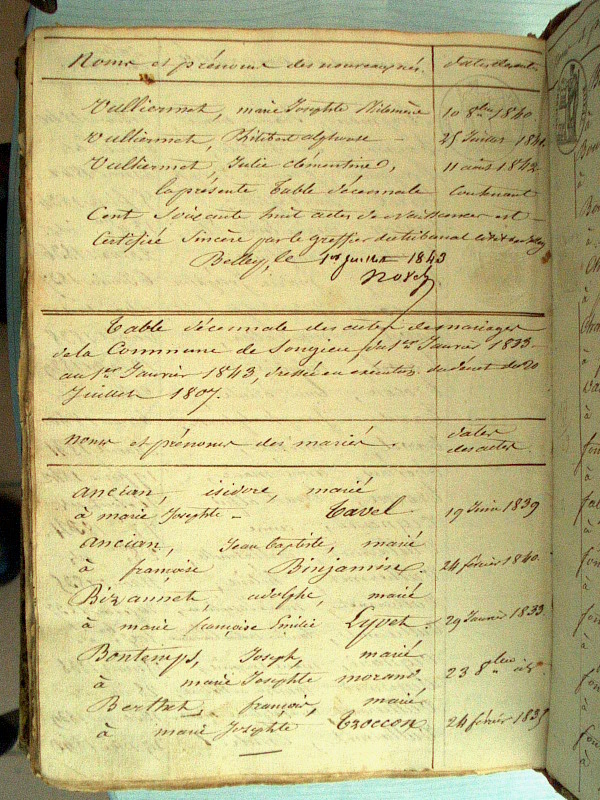 Noms et prénoms des nouveaux nés. dates des actes
Vulliermet, marie Josephte Philomène 10 8bre 1840.
Vulliermet, Philibert alphonse - 25 Juillet 1841.
Vulliermet, Julie Clémentine, 11 août 1842
la présente Table décennale contenant
Cent Soixante huit actes de Naissances est
Certifiée Sincère par le greffier du tribunal
Belley, le 1er Juillet 1843
Table décennale des actes de mariages
de la Commune de Songieu, du 1er Janvier 1833
au 1er Janvier 1843, dressée en exécution du décret du 20
Juillet 1807.
Noms et prénoms des mariés. dates
des actes
ancian, isidore, marié
à marie Josephte - Tavel 19 Juin 1839
ancian, Jean baptiste, marié
à françoise Binjamin. 24 février 1840.
Bizannet, adolphe, marié
à marie françoise Emilie Lyvet. 29 Janvier 1833
Bontemps, Joseph, marié
à marie Josephte morand. 23 8bre
Berthet, françois, marié
à marie Josephte Troccon 24 février 1835